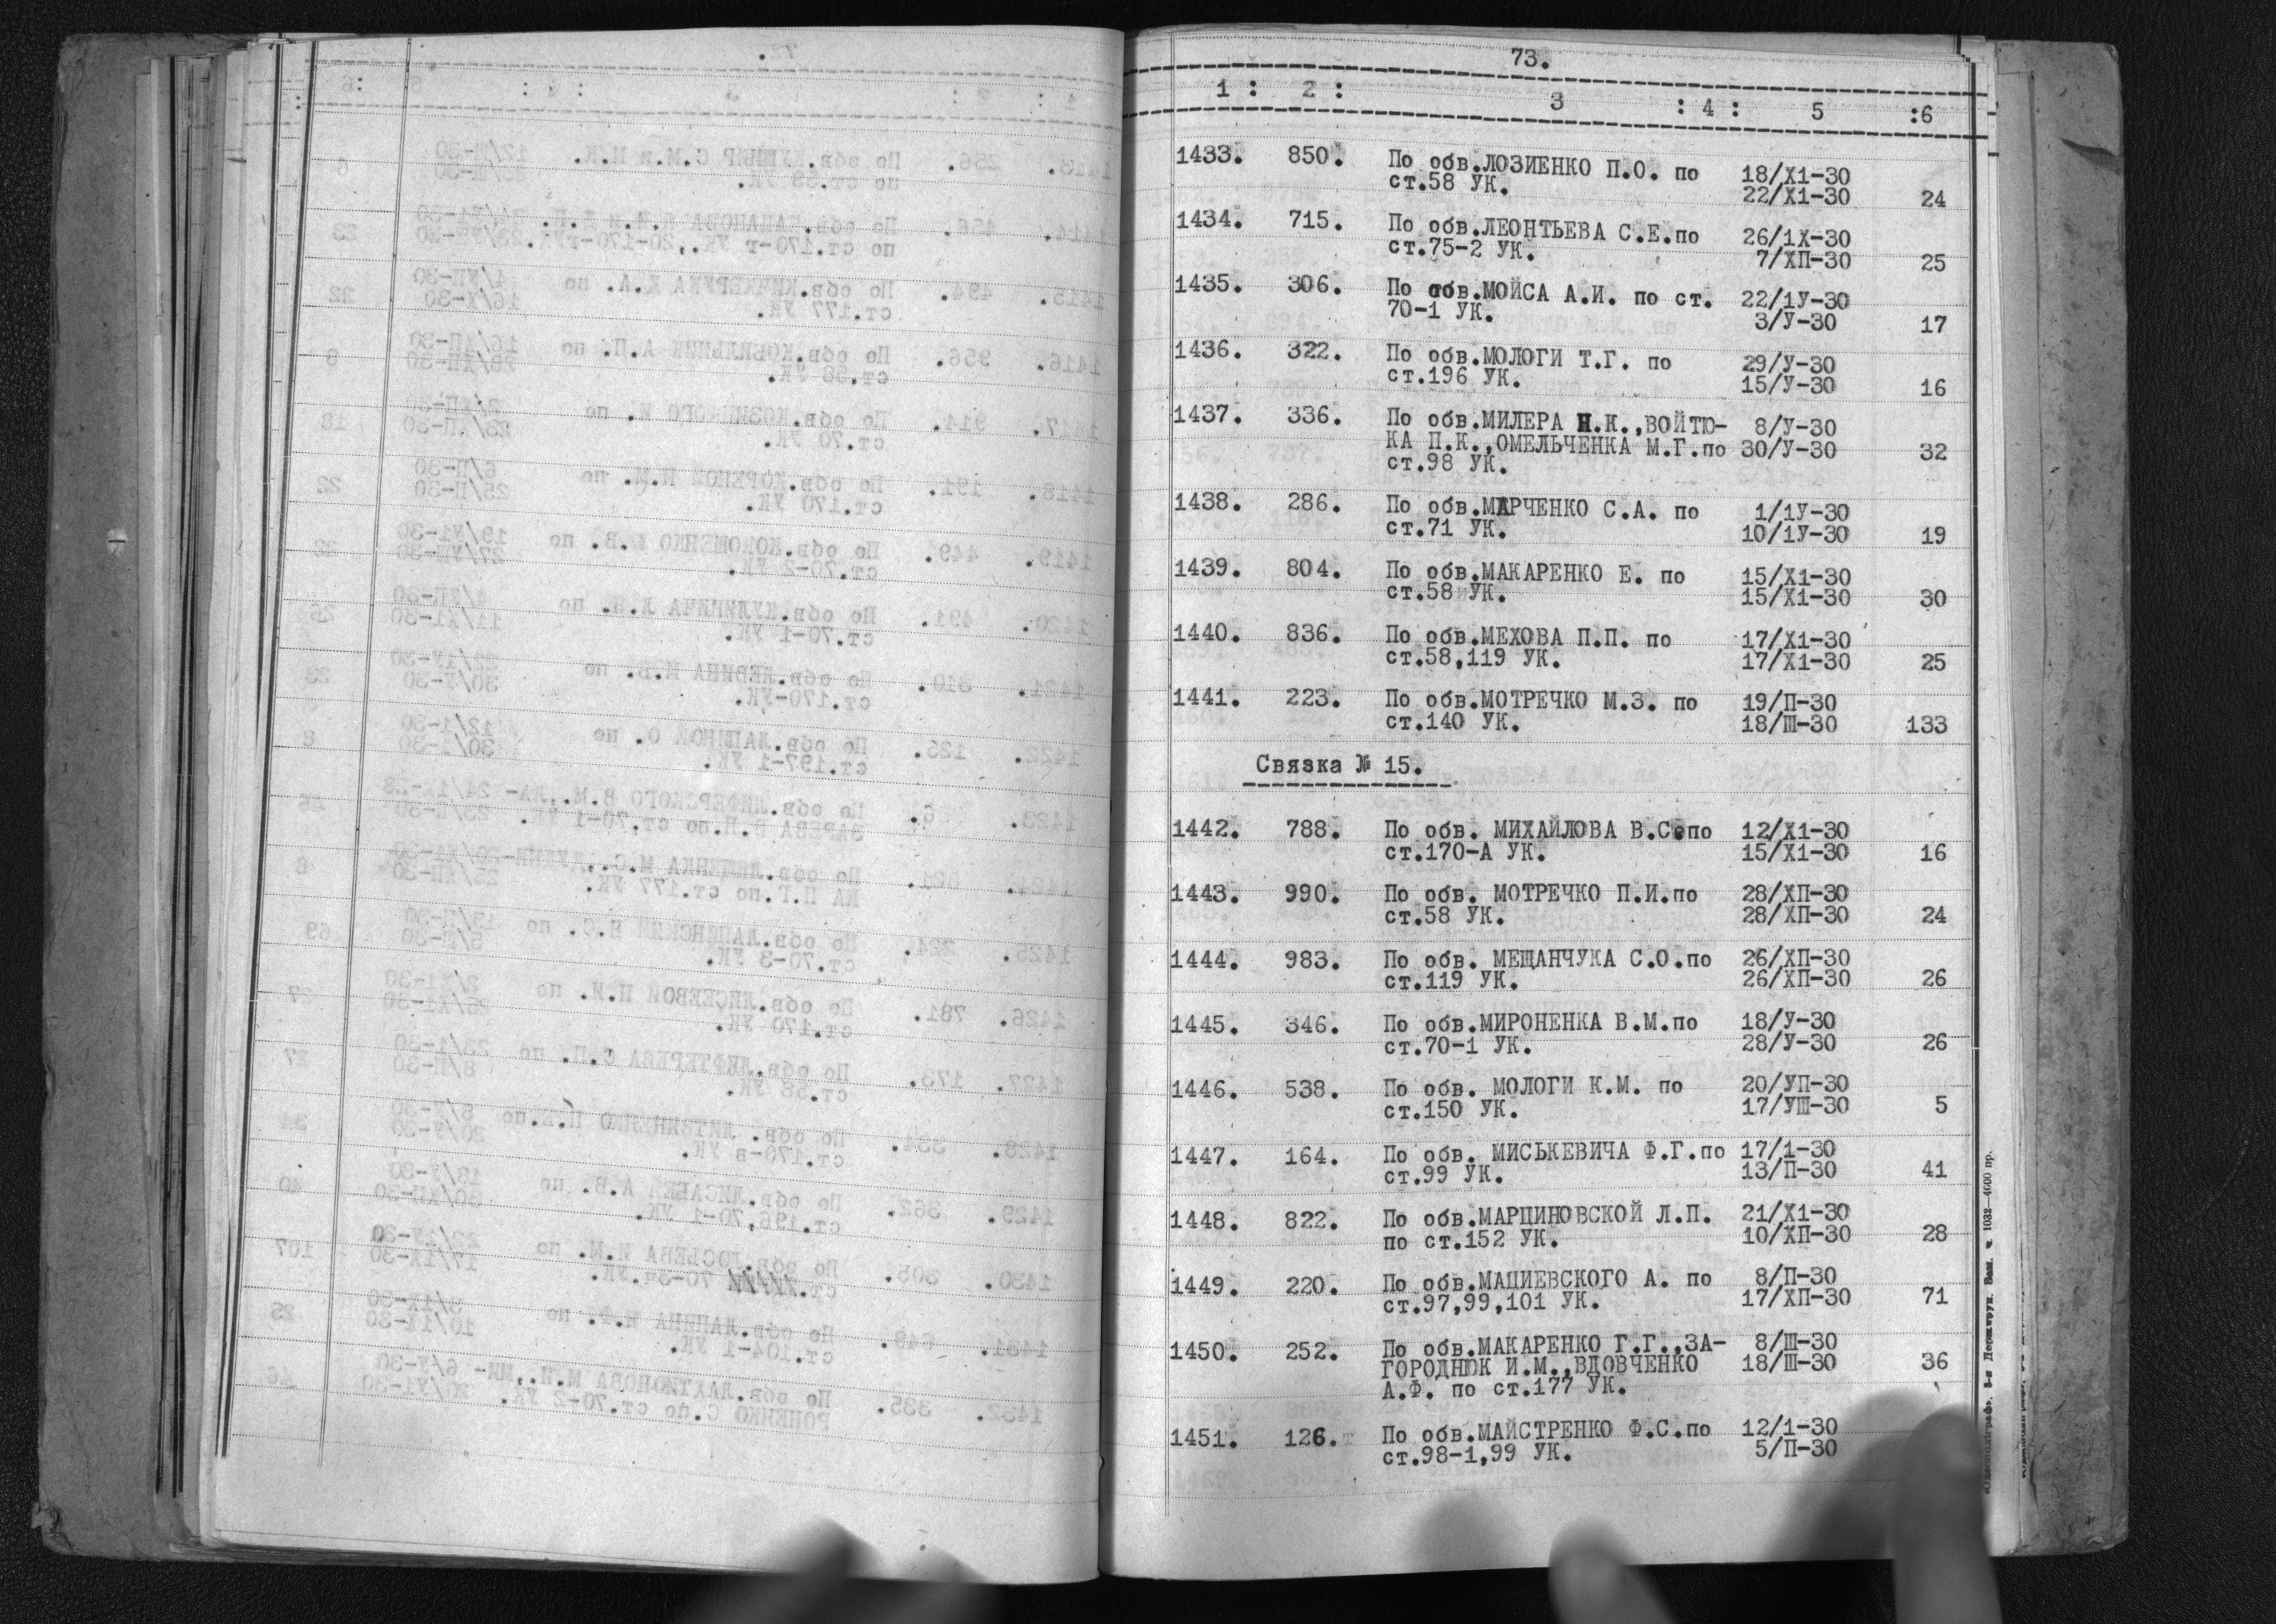 73.
1 : 2 : 3 : 4 : 5 :6
1433. 850. По обв.ЛОЗИЕНКО П.О. по 18/Х1-30
ст.58 УК. 22/Х1-30 24
1434. 715. По обв.ЛЕОНТЬЕВА С.Е.по 26/1Х-30
ст.75-2 УК. 7/ХП-30 25
1435. 306. По обв.МОЙСА А.И. по ст. 22/1У-30
70-1 УК. 3/У-30 17
1436. 322. По обв.МОЛОГИ Т.Г. по 29/У-30
ст.196 УК. 15/У-30 16
1437. 336. По обв.МИЛЕРА Н.К.,ВОЙТЮ- 8/У-30
КА П.К.,ОМЕЛЬЧЕНКА М.Г.по 30/У-30 32
ст.98 УК.
1438. 286. По обв.МАРЧЕНКО С.А. по 1/1У-30
ст.71 УК. 10/1У-30 19
1439. 804. По обв.МАКАРЕНКО Е. по 15/Х1-30
ст.58 УК. 15/Х1-30 30
1440. 836. По обв.МЕХОВА П.П. по 17/Х1-30
ст.58,119 УК. 17/Х1-30 25
1441. 223. По обв.МОТРЕЧКО М.З. по 19/П-30
ст.140 УК. 18/Ш-30 133
Связка № 15.
1442. 788. По обв. МИХАЙЛОВА В.С.по 12/Х1-30
ст.170-А УК. 15/Х1-30 16
1443. 990. По обв. МОТРЕЧКО П.И.по 28/ХП-30
ст.58 УК. 28/ХП-30 24
1444. 983. По обв. МЕЩАНЧУКА С.О.по 26/ХП-30
ст.119 УК. 26/ХП-30 26
1445. 346. По обв.МИРОНЕНКА В.М.по 18/У-30
ст.70-1 УК. 28/У-30 26
1446. 538. По обв. МОЛОГИ К.М. по 20/УП-30
ст.150 УК. 17/УШ-30 5
1447. 164. По обв. МИСЬКЕВИЧА Ф.Г.по 17/1-30
ст.99 УК. 13/П-30 41
1448. 822. По обв.МАРЦИНОВСКОЙ Л.П. 21/Х1-30
по ст.152 УК. 10/ХП-30 28
1449. 220. По обв.МАЦИЕВСКОГО А. по 8/П-30
ст.97,99,101 УК. 17/ХП-30 71
1450. 252. По обв.МАКАРЕНКО Г.Г.,ЗА- 8/Ш-30
ГОРОДНЮК И.М.,ВДОВЧЕНКО 18/Ш-30 36
А.Ф. по ст.177 УК.
1451. 126. По обв.МАЙСТРЕНКО Ф.С.по 12/1-30
ст.98-1,99 УК. 5/П-30